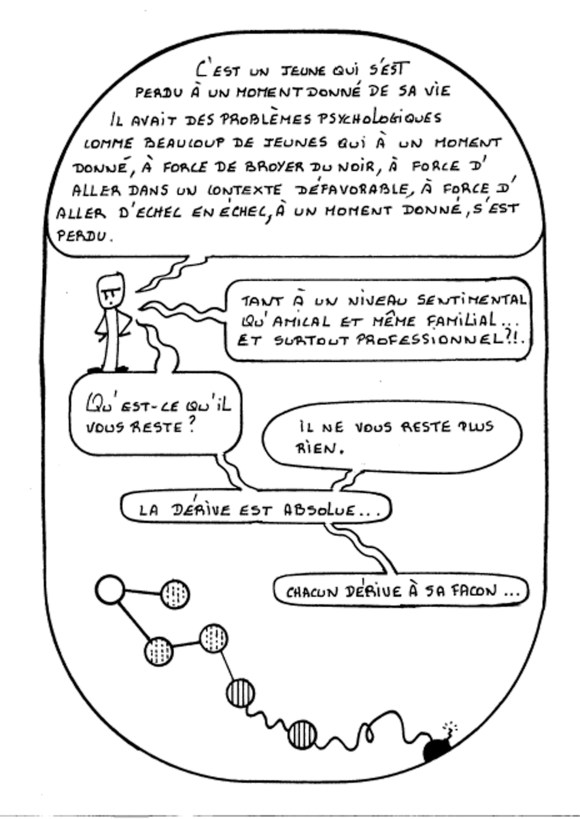 C'EST UN JEUNE QUI S'EST
PERDU À UN MOMENT DONNÉ DE SA VIE
IL AVAIT DES PROBLÈMES PSYCHOLOGIQUES
COMME BEAUCOUP DE JEUNES QUI À UN MOMENT
DONNÉ, À FORCE DE BROYER DU NOIR, À FORCE D'
ALLER DANS UN CONTEXTE DÉFAVORABLE, À FORCE D'
ALLER D'ECHEC EN ÉCHEC, À UN MOMENT DONNÉ, S'EST
PERDU.
TANT À UN NIVEAU SENTIMENTAL
QU'AMICAL ET MÊME FAMILIAL...
ET SURTOUT PROFESSIONNEL?!.
QU'EST-CE QU'IL
VOUS RESTE ?
IL NE VOUS RESTE PLUS
RIEN.
LA DÉRIVE EST ABSOLUE...
CHACUN DÉRIVE À SA FACON ...